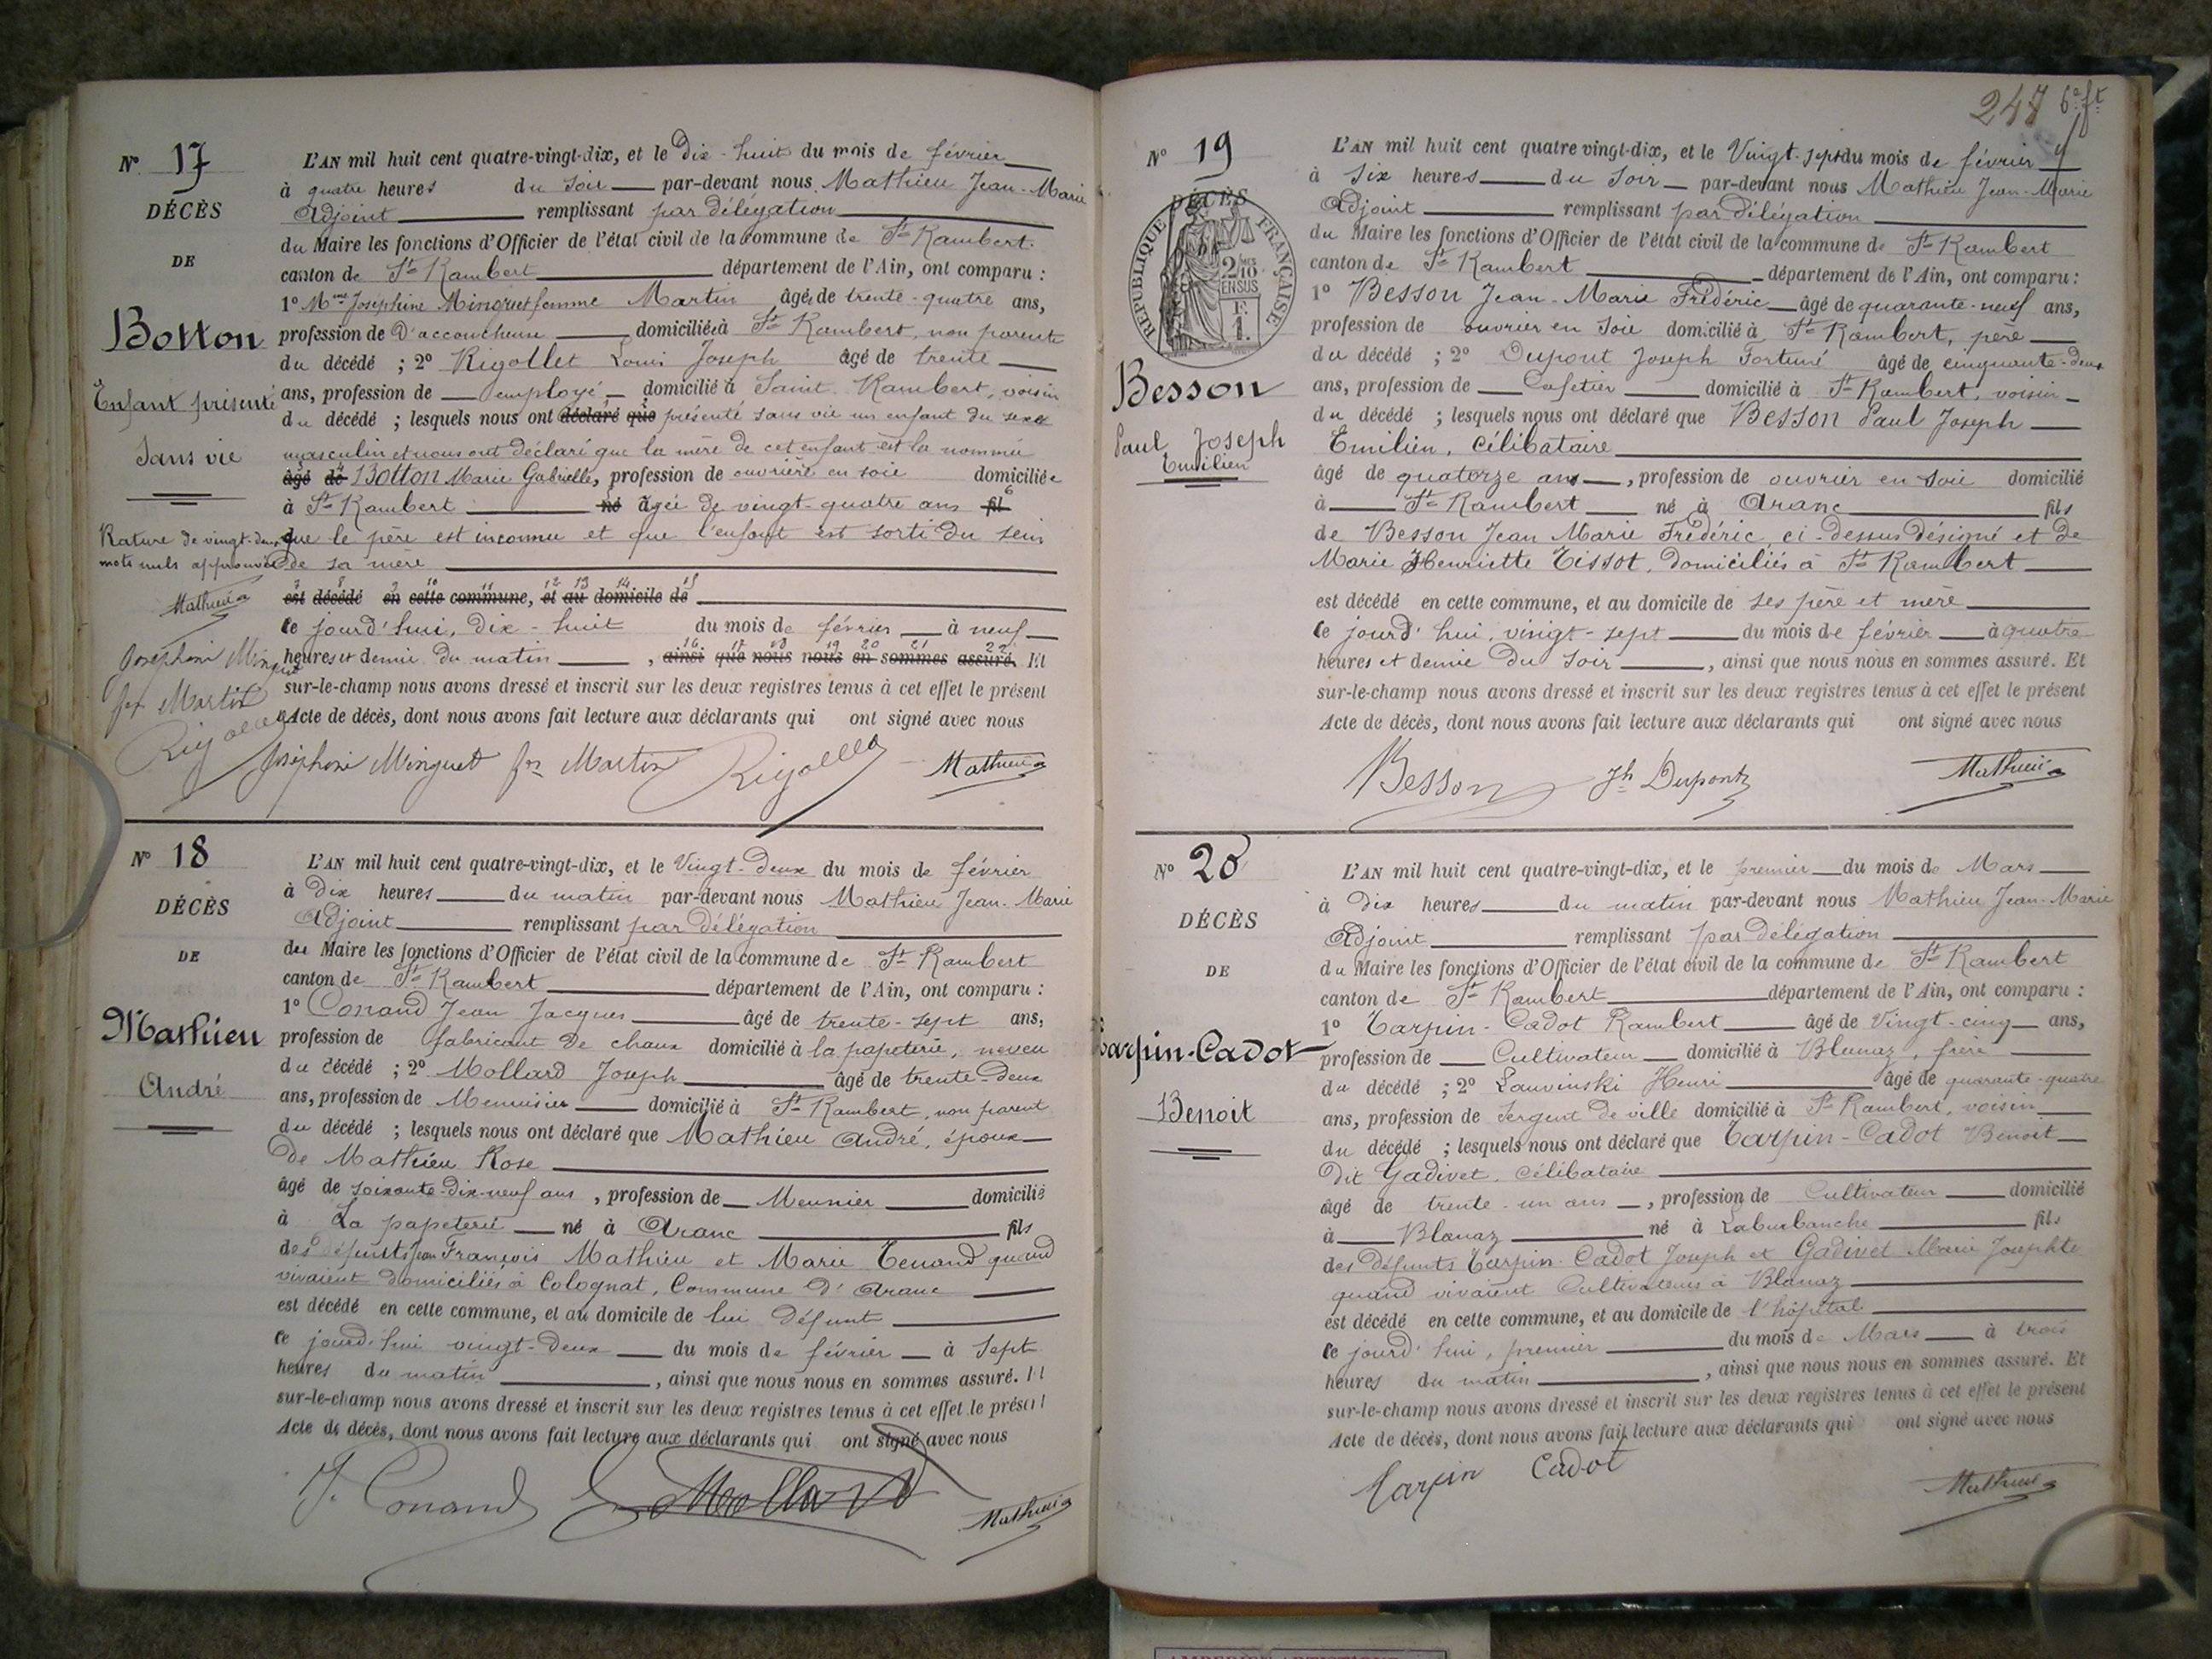 N° 17
DÉCÈS
DE
Botton
Enfant présenté
Sans vie
Rature de vingt-deux
mots nuls approuvée
Mathieu
Joséphine Minguet
fe Martin
Rigollet
L'AN mil huit cent quatre-vingt-dix, et le dix-huit du mois de février
à quatre heures du soir par-devant nous Mathieu Jean-Marie
Adjoint remplissant par délégation
du Maire les fonctions d'Officier de l'état civil de la commune de St Rambert
canton de St Rambert département de l'Ain, ont comparu :
1° Mme Joséphine Minguet femme Martin âgée de trente-quatre ans,
profession de D'accoucheuse domiciliée à St Rambert, non parente
du décédé ; 2° Rigollet Louis Joseph âgé de trente
ans, profession de employé domicilié à Saint Rambert, voisin
du décédé ; lesquels nous ont déclaré que présenté sans vie un enfant du sexe
masculin et nous ont déclaré que la mère de cet enfant est la nommée
âgé de Botton Marie Gabrielle, profession de ouvrière en soie domiciliée
à St Rambert né âgée de vingt-quatre ans fil 6
que le père est inconnu et que l'enfant est sorti du sein
de sa mère
7 8 9 10 11 12 13 14 15
est décédé en cette commune, et au domicile de
ce jourd'hui, dix-huit du mois de février à neuf
16 17 18 19 20 21 22
heures et demie du matin , ainsi que nous nous en sommes assuré. Et
sur-le-champ nous avons dressé et inscrit sur les deux registres tenus à cet effet le présent
Acte de décès, dont nous avons fait lecture aux déclarants qui ont signé avec nous
Joséphine Minguet fe Martin Rigollet Mathieu
N° 18
DÉCÈS
DE
Mathieu
André
L'AN mil huit cent quatre-vingt-dix, et le Vingt-deux du mois de février
à Dix heures du matin par-devant nous Mathieu Jean-Marie
Adjoint remplissant par délégation
du Maire les fonctions d'Officier de l'état civil de la commune de St Rambert
canton de St Rambert département de l'Ain, ont comparu :
1° Conand Jean Jacques âgé de trente-sept ans,
profession de fabricant de chaux domicilié à la papeterie, neveu
du décédé ; 2° Mollard Joseph âgé de trente-deux
ans, profession de Menuisier domicilié à St Rambert, non parent
du décédé ; lesquels nous ont déclaré que Mathieu André, époux
de Mathieu Rose
âgé de soixante-dix-neuf ans , profession de Meunier domicilié
à La papeterie né à Aranc fils
des défunts Jean François Mathieu et Marie Tenand quand
vivaient domiciliés à Colognat, Commune d'Aranc
est décédé en cette commune, et au domicile de lui défunt
ce jourd'hui vingt-deux du mois de février à Sept
heures du matin , ainsi que nous nous en sommes assuré. Et
sur-le-champ nous avons dressé et inscrit sur les deux registres tenus à cet effet le présent
Acte de décès, dont nous avons fait lecture aux déclarants qui ont signé avec nous
J. Conand Mollard Mathieu
247 6e ft
N° 19
DÉCÈS
RÉPUBLIQUE FRANÇAISE
2/10 EN SUS
F. 1.
Besson
Paul Joseph
Emilien
L'AN mil huit cent quatre vingt-dix, et le Vingt-sept du mois de février
à Six heures du Soir par-devant nous Mathieu Jean-Marie
Adjoint remplissant par délégation
du Maire les fonctions d'Officier de l'état civil de la commune de St Rambert
canton de St Rambert département de l'Ain, ont comparu :
1° Besson Jean-Marie Frédéric âgé de quarante-neuf ans,
profession de ouvrier en soie domicilié à St Rambert, père
du décédé ; 2° Dupont Joseph Fortuné âgé de cinquante-deux
ans, profession de Cafetier domicilié à St Rambert, voisin
du décédé ; lesquels nous ont déclaré que Besson Paul Joseph
Emilien, célibataire
âgé de quatorze ans , profession de ouvrier en soie domicilié
à St Rambert né à Aranc fils
de Besson Jean Marie Frédéric, ci-dessus désigné et de
Marie Henriette Tissot, domiciliés à St Rambert
est décédé en cette commune, et au domicile de ses père et mère
ce jourd'hui, vingt-sept du mois de février à quatre
heures et demie du soir , ainsi que nous nous en sommes assuré. Et
sur-le-champ nous avons dressé et inscrit sur les deux registres tenus à cet effet le présent
Acte de décès, dont nous avons fait lecture aux déclarants qui ont signé avec nous
Besson Jh Dupont Mathieu
N° 20
DÉCÈS
DE
Carpin-Cadot
Benoit
L'AN mil huit cent quatre-vingt-dix, et le premier du mois de Mars
à Dix heures du matin par-devant nous Mathieu Jean-Marie
Adjoint remplissant par délégation
du Maire les fonctions d'Officier de l'état civil de la commune de St Rambert
canton de St Rambert département de l'Ain, ont comparu :
1° Carpin-Cadot Rambert âgé de Vingt-cinq ans,
profession de Cultivateur domicilié à Blanaz, frère
du décédé ; 2° Lauvinski Henri âgé de quarante-quatre
ans, profession de Sergent de ville domicilié à St Rambert, voisin
du décédé ; lesquels nous ont déclaré que Carpin-Cadot Benoit
dit Gadivet, célibataire
âgé de trente-un ans , profession de Cultivateur domicilié
à Blanaz né à Laburbanche fils
des défunts Carpin-Cadot Joseph et Gadivet Marie Josephte
quand vivaient Cultivateurs à Blanaz
est décédé en cette commune, et au domicile de l'hôpital
ce jourd'hui, premier du mois de Mars à trois
heures du matin , ainsi que nous nous en sommes assuré. Et
sur-le-champ nous avons dressé et inscrit sur les deux registres tenus à cet effet le présent
Acte de décès, dont nous avons fait lecture aux déclarants qui ont signé avec nous
Carpin Cadot Mathieu